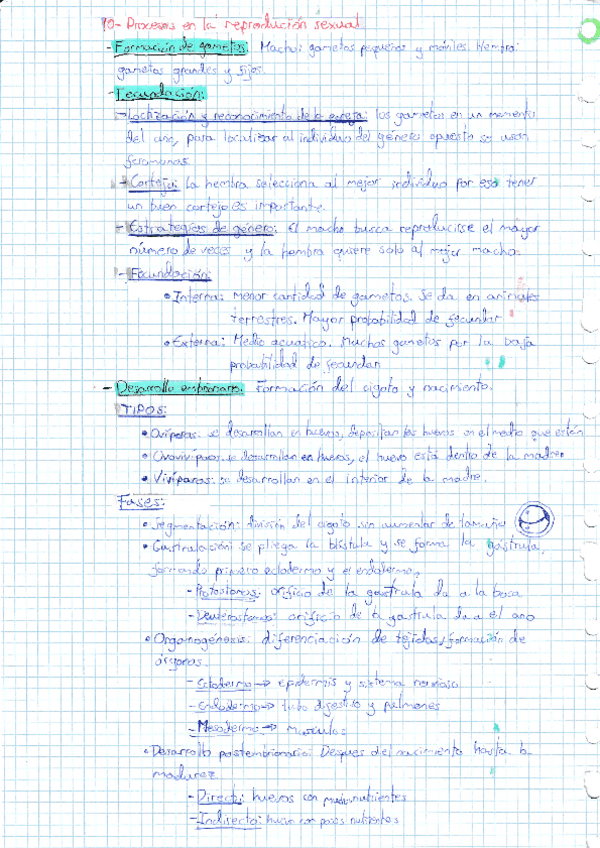 10- Procesos en la reproducción sexual
- Formación de gametos: Macho: gametos pequeños y móviles. Hembra:
gametos grandes y fijos.
- Fecundación:
- Loclización y reconocimiento de la pareja: los gametos en un momento
del año, para localizar al individuo del género opuesto se usan
feromonas
- Cortejo: la hembra selecciona al mejor individuo por eso tener
un buen cortejo es importante.
- Estrategias de género: El macho busca reproducirse el mayor
número de veces y la hembra quiere solo al mejor macho.
- Fecundación:
• Interna: Menor cantidad de gametos. Se da en animales
terrestres. Mayor probabilidad de fecundar
• Externa: Medio acuático. Muchos gametos por la baja
probabilidad de fecundar
- Desarrollo embrionario: Formación del cigoto y nacimiento.
TIPOS:
• Ovíparos: se desarrollan en huevos, depositan los huevos en el medio que estén
• Ovovivíparos: se desarrollan en huevos, el huevo está dentro de la madre
• Vivíparos: se desarrollan en el interior de la madre.
Fases:
• Segmentación: división del cigoto sin aumentar de tamaño
• Gastrulación: se pliega la blástula y se forma la gástrula,
formando primero ectodermo y el endodermo.
- Protostomos: orificio de la gástrula da a la boca
- Deuterostomos: orificio de la gástrula da a el ano
• Organogénesis: diferenciación de tejidos, formación de
órganos.
- Ectodermo → epidermis y sistema nervioso
- Endodermo → tubo digestivo y pulmones
- Mesodermo → músculos
• Desarrollo postembrionario: Después del nacimiento hasta la
madurez
- Directo: huevos con muchos nutrientes
- Indirecto: huevo con pocos nutrientes